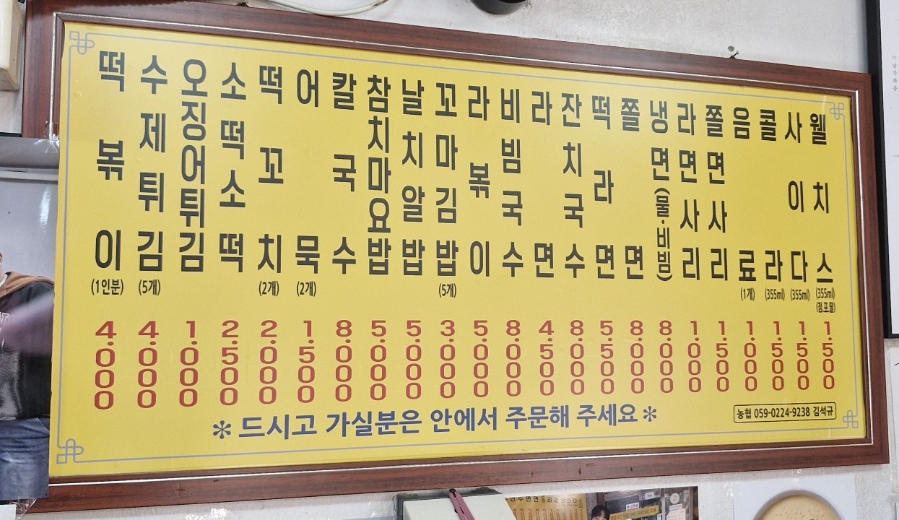 떡볶이 (1인분) 4.000
수제튀김 (5개) 4.000
오징어튀김 1.000
소떡소떡 2.500
떡꼬치 (2개) 2.000
어묵 (2개) 1.500
칼국수 8.000
참치마요밥 5.000
날치알밥 5.000
꼬마김밥 (5개) 3.000
라볶이 5.000
비빔국수 8.000
라면 4.500
잔치국수 8.000
떡라면 5.500
쫄면 8.000
냉면(물·비빔) 8.000
라면사리 1.000
쫄면사리 1.500
음료 (1개) 1.000
콜라 (355ml) 1.500
사이다 (355ml) 1.500
웰치스 (355ml) (청포물) 1.500
※ 드시고 가실분은 안에서 주문해 주세요 ※
농협 059-0224-9238 김석규